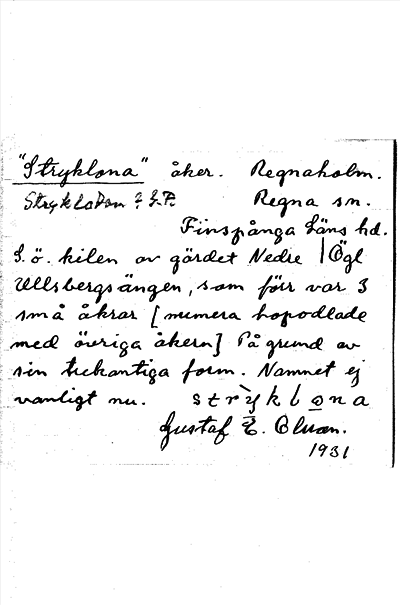 "Stryklona" åker. Regnaholm.
Strykladan? S.P. Regna sn.
Finspånga läns hd.
S. ö. kilen av gärdet Nedre | Ögl
Ullsbergsängen, som förr var 3
små åkrar [numera hopodlade
med övriga åkern] På grund av
sin trekantiga form. Namnet ej
vanligt nu. stryklona
Gustaf E.
1931